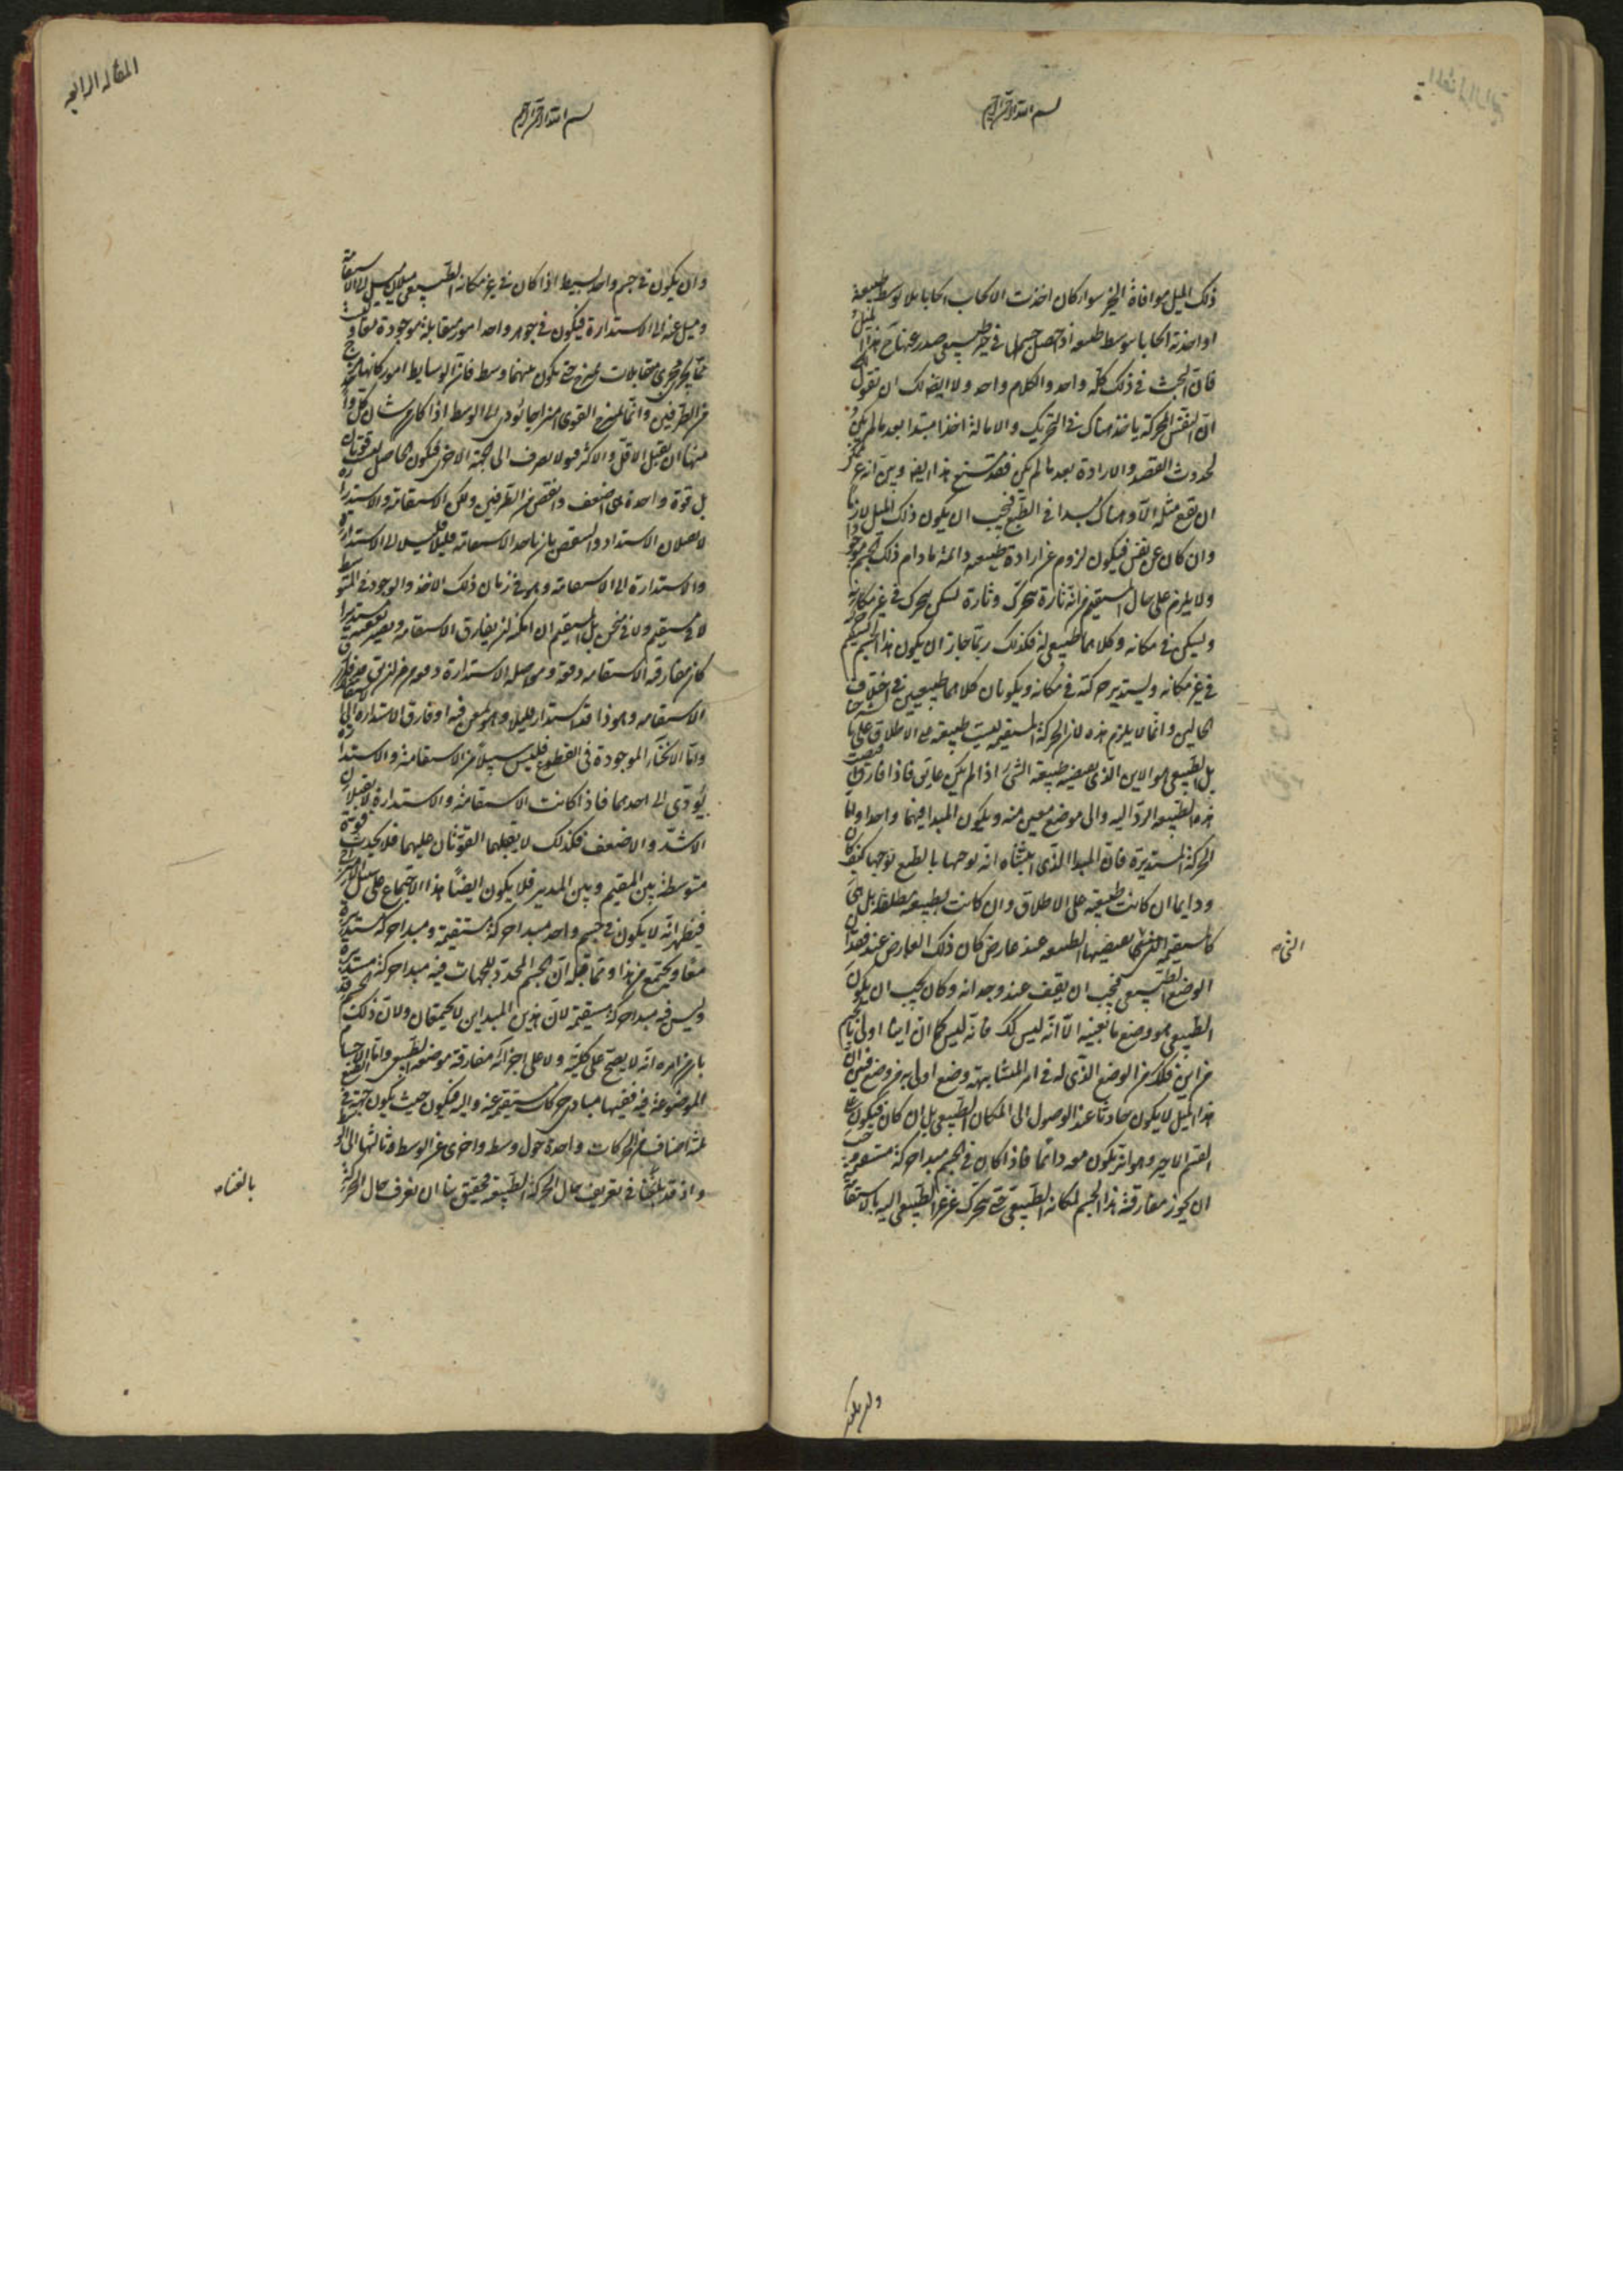 بسم الله الرحمن الرحيم
ذلك الميل موافاة الحيز سواء كان اخذت الايجاب ايجابا بلا توسط طبيعة
او اخذته ايجابا بتوسط طبيعة اذ حصل جسمها في حيز طبيعي صدر عنها ح هذا الميل
فان البحث في ذلك كله واحد والكلام واحد ولا ايضا لك ان تقول
ان النفس المحركة ياخذ هناك في التحريك والامالة اخذا مبتدا بعد ما لم يكن
لحدوث القصد والارادة بعد ما لم يكن فقد يمتنع هذا ايضا وبين انه غير ممكن
ان يقع مثله الا وهناك مبدا في الطبع فيجب ان يكون ذلك الميل لازما
وان كان عن نفس فيكون لزوم عن ارادة طبيعية دائمة ما دام ذلك الجسم موجودا
ولا يلزم على حال المستقيم انه تارة يتحرك وتارة يسكن يتحرك في غير مكانه
ويسكن في مكانه وكلاهما طبيعي له فكذلك ربما جاز ان يكون هذا الجسم
في غير مكانه ويستدير حركته في مكانه ويكونان كلاهما طبيعيين في اختلاف
الحالين وانما لا يلزم هذه لان الحركة المستقيمة ليست طبيعية على الاطلاق على ما
بل الطبيعي هو الاين الذي يعيضه طبيعة الشئ اذا لم يكن عايق فاذا فارق
هذه الطبيعة الرد اليه والى موضع معين منه ويكون المبدا فيهما واحدا واما
الحركة المستديرة فان المبدا الذي اثبتناه انه يوجبها بالطبع يوجبها كيف كان
ودايما ان كانت طبيعية على الاطلاق وان كانت ليست طبيعية مطلقا بل هي
كالمستقيمة التي يعيضيها الطبيعة عند عارض كان ذلك العارض عند فقدان
الوضع الطبيعي فيجب ان يقف عند وجدانه وكان يجب ان يكون
الطبيعي هو وضع ما بعينه الا انه ليس كك فانه ليس كما ان اينا اولى بالجسم
من اين فكذلك من الوضع الذي له في امر المتشابهة وضع اولى به من وضع فبين ان
هذا الميل لا يكون حادثا عند الوصول الى المكان الطبيعي بل ان كان فيكون على
القسم الاخير وهو انه يكون معه دائما فاذا كان في الجسم مبدا حركة مستقيمة وجب
ان يجوز مفارقة هذا الجسم لمكانه الطبيعي حتى يتحرك عن غير الطبيعي اليه بالاستقامة
المقالة الرابعة
بسم الله الرحمن الرحيم
وان يكون في جسم واحد بسيط اذا كان في غير مكانه الطبيعي ميلان ميل الى الاستقامة
وميل عنه الى الاستدارة فيكون في جوهر واحد امور متقابلة موجودة معا وليست
مما يجري مجرى متقابلات يمتزج حتى يكون بينهما وسط فان الوسايط امور كانها يمتزج
من الطرفين وانما يمتزج القوى امتزاجا يؤدي الى الوسط اذا كان من شان كل واحد
منهما ان يقبل الاقل والاكثر فولا يصرف الى الجهة الاخرى فيكون الحاصل ليست قوتان
بل قوة واحدة هي اضعف وانقص من الطرفين ولكن الاستقامة والاستدارة
لا يقبلان الاشتداد والتنقص بان ياخذ الاستقامة قليلا قليلا الى الاستدارة
والاستدارة الى الاستقامة وهو في زمان ذلك الاخذ والوجود في المتوسط
لا مستقيم ولا منحن بل المستقيم ان امكن ان يفارق الاستقامة ويصير بعينه مستديرا
كان مفارقة الاستقامة دفعة ومواصلة الاستدارة دفعة
الاستقامة وهو ذا قد استدار قليلا وهو يمعن فيه او فارق الاستدارة الى
واما الانحناء الموجودة في القطوع فليس سبيلا من الاستقامة والاستدارة
يؤدي الى احدهما فاذا كانت الاستقامة والاستدارة لا يقبلان
الاشد والاضعف فكذلك لا يقبلهما القوتان عليهما فلا يحدث قوة
متوسطة بين المقيم وبين المدير فلا يكون ايضا هذا الاجتماع على سبيل امتزاج
فيظهر انه لا يكون في جسم واحد مبدا حركة مستقيمة ومبدا حركة مستديرة
معا ويجتمع من هذا ومما قبله ان الجسم المحدد للجهات فيه مبدا حركة مستديرة
وليس فيه مبدا حركة مستقيمة لان هذين المبداين لا يجتمعان ولان ذلك الجسم قد
بان من امره انه لا يصح على كليته ولا على اجزائه مفارقة موضعه الطبيعي واما الاجسام
الموضوعة فيه ففيها مبادي حركات مستقيمة عنه واليه فيكون حيث يكون جهته في الطبع
ثلثة اصناف من الحركات واحدة حول وسط واخرى عن الوسط وثالثها الى الوسط
واذ قد بلغنا في تعريف حال الحركة الطبيعية فحقيق بنا ان نعرف حال الحركة